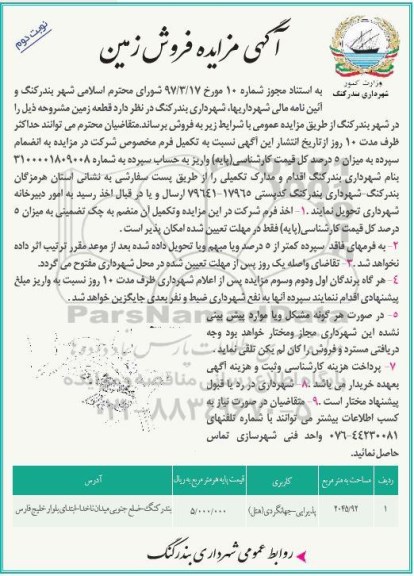 نوبت دوم
آگهی مزایده فروش زمین
وزارت کشور
شهرداری بندرکنگ
به استناد مجوز شماره ۱۰ مورخ ۹۷/۳/۱۷ شورای محترم اسلامی شهر بندرکنگ و
آئین نامه مالی شهرداریها، شهرداری بندرکنگ در نظر دارد قطعه زمین مشروحه ذیل را
در شهر بندرکنگ از طریق مزایده عمومی با شرایط زیر به فروش برساند.متقاضیان محترم می توانند حداکثر
ظرف مدت ۱۰ روز ازتاریخ انتشار این آگهی نسبت به تکمیل فرم مخصوص شرکت در مزایده به انضمام
سپرده به میزان ۵ درصد کل قیمت کارشناسی(پایه) واریز به حساب سپرده به شماره ۳۱۰۰۰۰۱۸۰۹۰۰۸
بنام شهرداری بندرکنگ اقدام و مدارک تکمیلی را از طریق پست سفارشی به نشانی استان هرمزگان
بندرکنگ-شهرداری بندرکنگ کدپستی ۱۷۹۶۵-۷۹۶۴۱ ارسال و یا در قبال اخذ رسید به امور دبیرخانه
شهرداری تحویل نمایند .۱- اخذ فرم شرکت در این مزایده وتکمیل آن منضم به چک تضمینی به میزان ۵
درصد کل قیمت کارشناسی(پایه) فقط در مهلت تعیین شده امکان پذیر است .
۲- به فرمهای فاقد سپرده کمتر از ۵ درصد ویا مبهم ویا تحویل داده شده بعد از موعد مقرر ترتیب اثر داده
نخواهد شد .۳- تقاضای واصله یک روز پس از مهلت تعیین شده در محل شهرداری مفتوح می گردد.
۴- هر گاه برندگان اول ودوم وسوم مزایده پس از اعلام شهرداری ظرف مدت ۱۰ روز نسبت به واریز مبلغ
پیشنهادی اقدام ننمایند سپرده آنها به نفع شهرداری ضبط و نفر بعدی جایگزین خواهد شد .
۵- در صورت هر گونه مشکل ویا موارد پیش بینی
نشده این شهرداری مجاز ومختار خواهد بود وجه
دریافتی مسترد و فروش را کان لم یکن تلقی نماید .
۷- پرداخت هزینه کارشناسی وثبت و هزینه آگهی
بعهده خریدار می باشد .۸- شهرداری در رد یا قبول
پیشنهاد مختار است .۹- متقاضیان در صورت نیاز به
کسب اطلاعات بیشتر می توانند با شماره تلفنهای
۰۷۶-۴۴۲۳۰۰۸۱ واحد فنی شهرسازی تماس
حاصل نمائید.
ردیف مساحت به متر مربع کاربری قیمت پایه هر متر مربع به ریال آدرس
۱ ۲۰۴۵/۹۲ پذیرایی-جهانگردی(هتل) ۵/۰۰۰/۰۰۰ بندرکنگ-ضلع جنوبی میدان ناخدا-ابتدای بلوار خلیج فارس
روابط عمومی شهرداری بندرکنگ